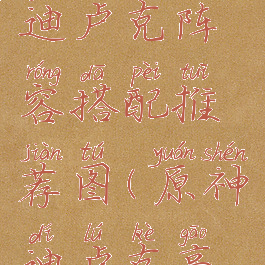 迪卢克阵
róng dā pèi tuī
容搭配推
jiàn tú yuán shén
荐图（原神
dí lú kè gāo
迪卢克高